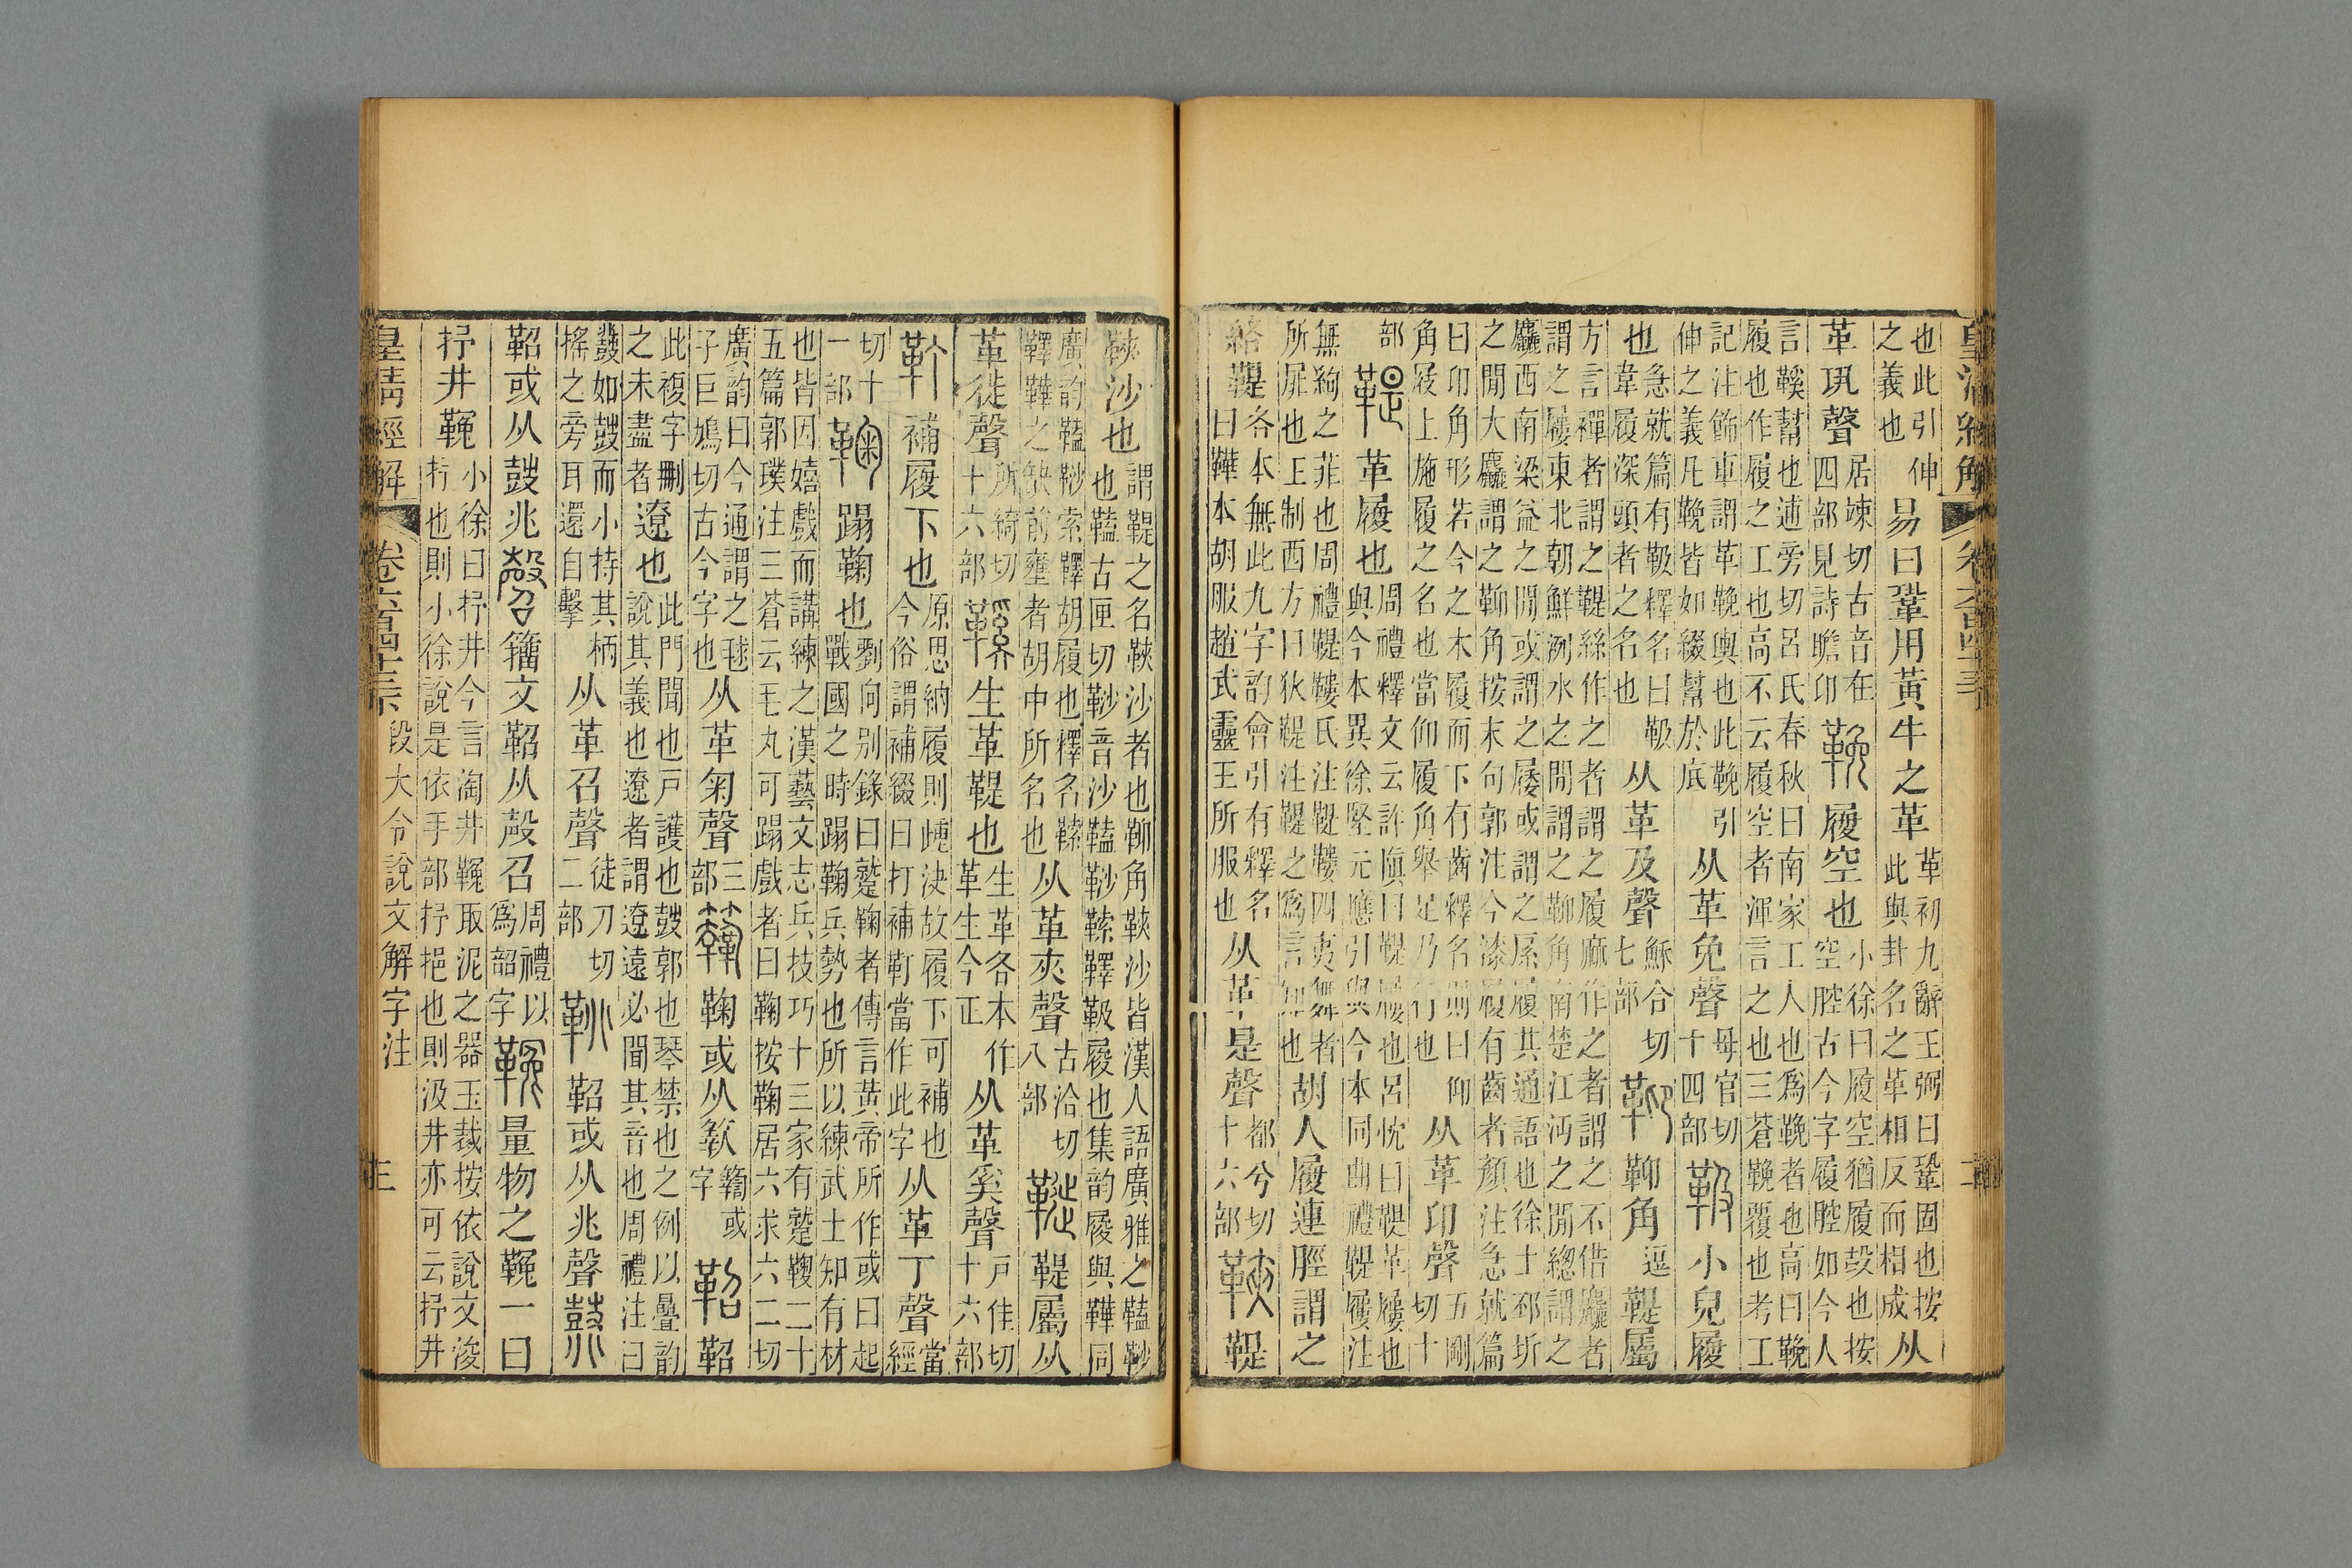 也此引伸之義也易曰鞏用黃牛之革革初九辭王弼曰鞏固也按此與卦名之革相反而相成从
革巩聲居竦切古音在四部見詩瞻卬鞔履空也小徐曰履空猶履㲉也按空腔古今字履腔如今人
言鞵幫也逋旁切呂氏春秋曰南家工人也爲鞔者也高曰鞔履也作履之工也高不云履空者渾言之也三蒼鞔覆也考工
記注飾車謂革鞔輿也此鞔引伸之義凡鞔皆如綴幫於底从革免聲母官切十四部靸小兒履
也急就篇有靸釋名曰靸韋履深頭者之名也从革及聲穌合切七部䩕䩕角逗鞮屬
方言禪者謂之鞮絲作之者謂之履麻作之者謂之不借麤者謂之屨東北朝鮮洌水之閒謂之䩕角南楚江沔之閒總謂之
麤西南梁益之閒或謂之屦或謂之履其通語也徐土邳圻之閒大麤謂之䩕角按末句郭注今漆履有齒者顏注急就篇
曰卬角形若今之木履而下有齒釋名則曰仰角屐上施履之名也當仰履角舉足乃行也从革卬聲五剛切十
部鞮革履也周禮釋文云許愼曰鞮屨也呂忱曰鞮革屨也與今本異徐堅元應引與今本同曲禮鞮屨注
無絇之菲也周禮鞮鞻氏注鞮鞻四夷舞者所屝也王制西方曰狄鞮注鞮之爲言知也胡人履連脛謂之
絡鞮各本無此九字韵會引有釋名曰鞾本胡服趙武靈王所服也从革是聲都兮切十六部䩡鞮
䩡沙也謂鞮之名䩡沙者也䩕角䩡沙皆漢人語廣雅之䪚䩖也䪚古匣切䩖音沙䪚䩖靸履也集韵屐與鞾同
廣韵䪚䩖索鞾胡履也釋名鞾之缺前壅者胡中所名也从革夾聲古洽切八部鞭鞮屬从
革徙聲所綺切十六部鞵生革鞮也生革各本作革生今正从革奚聲戶佳切十六部
靪補履下也原思納履則踵決故履下可補也今俗謂補綴曰打補靪當作此字从革丁聲當經
切十一部鞠蹋鞠也劉向別錄曰蹵鞠者傳言黃帝所作或曰起戰國之時蹋鞠兵勢也所以練武士知有材
也皆因嬉戲而講練之漢藝文志兵技巧十三家有蹵鞠二十五篇郭璞注三蒼云毛丸可蹋戲者曰鞠按鞠居六求六二切
廣韵曰今通謂之毬子巨鳩切古今字也从革匊聲三部𥶶鞠或从𥷚籀或字鞀鞀
此複字刪之未盡者遼也此門聞也戶護也鼓郭也琴禁也之例以疊韵說其義也遼者謂遼遠必聞其音也周禮注曰
鼗如鼓而小持其柄搖之旁耳還自擊从革召聲徒刀切二部鞉鞀或从兆聲鼗
鞀或从鼓兆磬籒文鞀从殸召周禮以爲韶字䩩量物之䩩一曰
抒井䩩小徐曰抒井今言淘井䩩取泥之器玉裁按依說文浚抒也則小徐說是依手部抒挹也則汲井亦可云抒井
皇清經解 卷六百四十三 段大令說文解字注